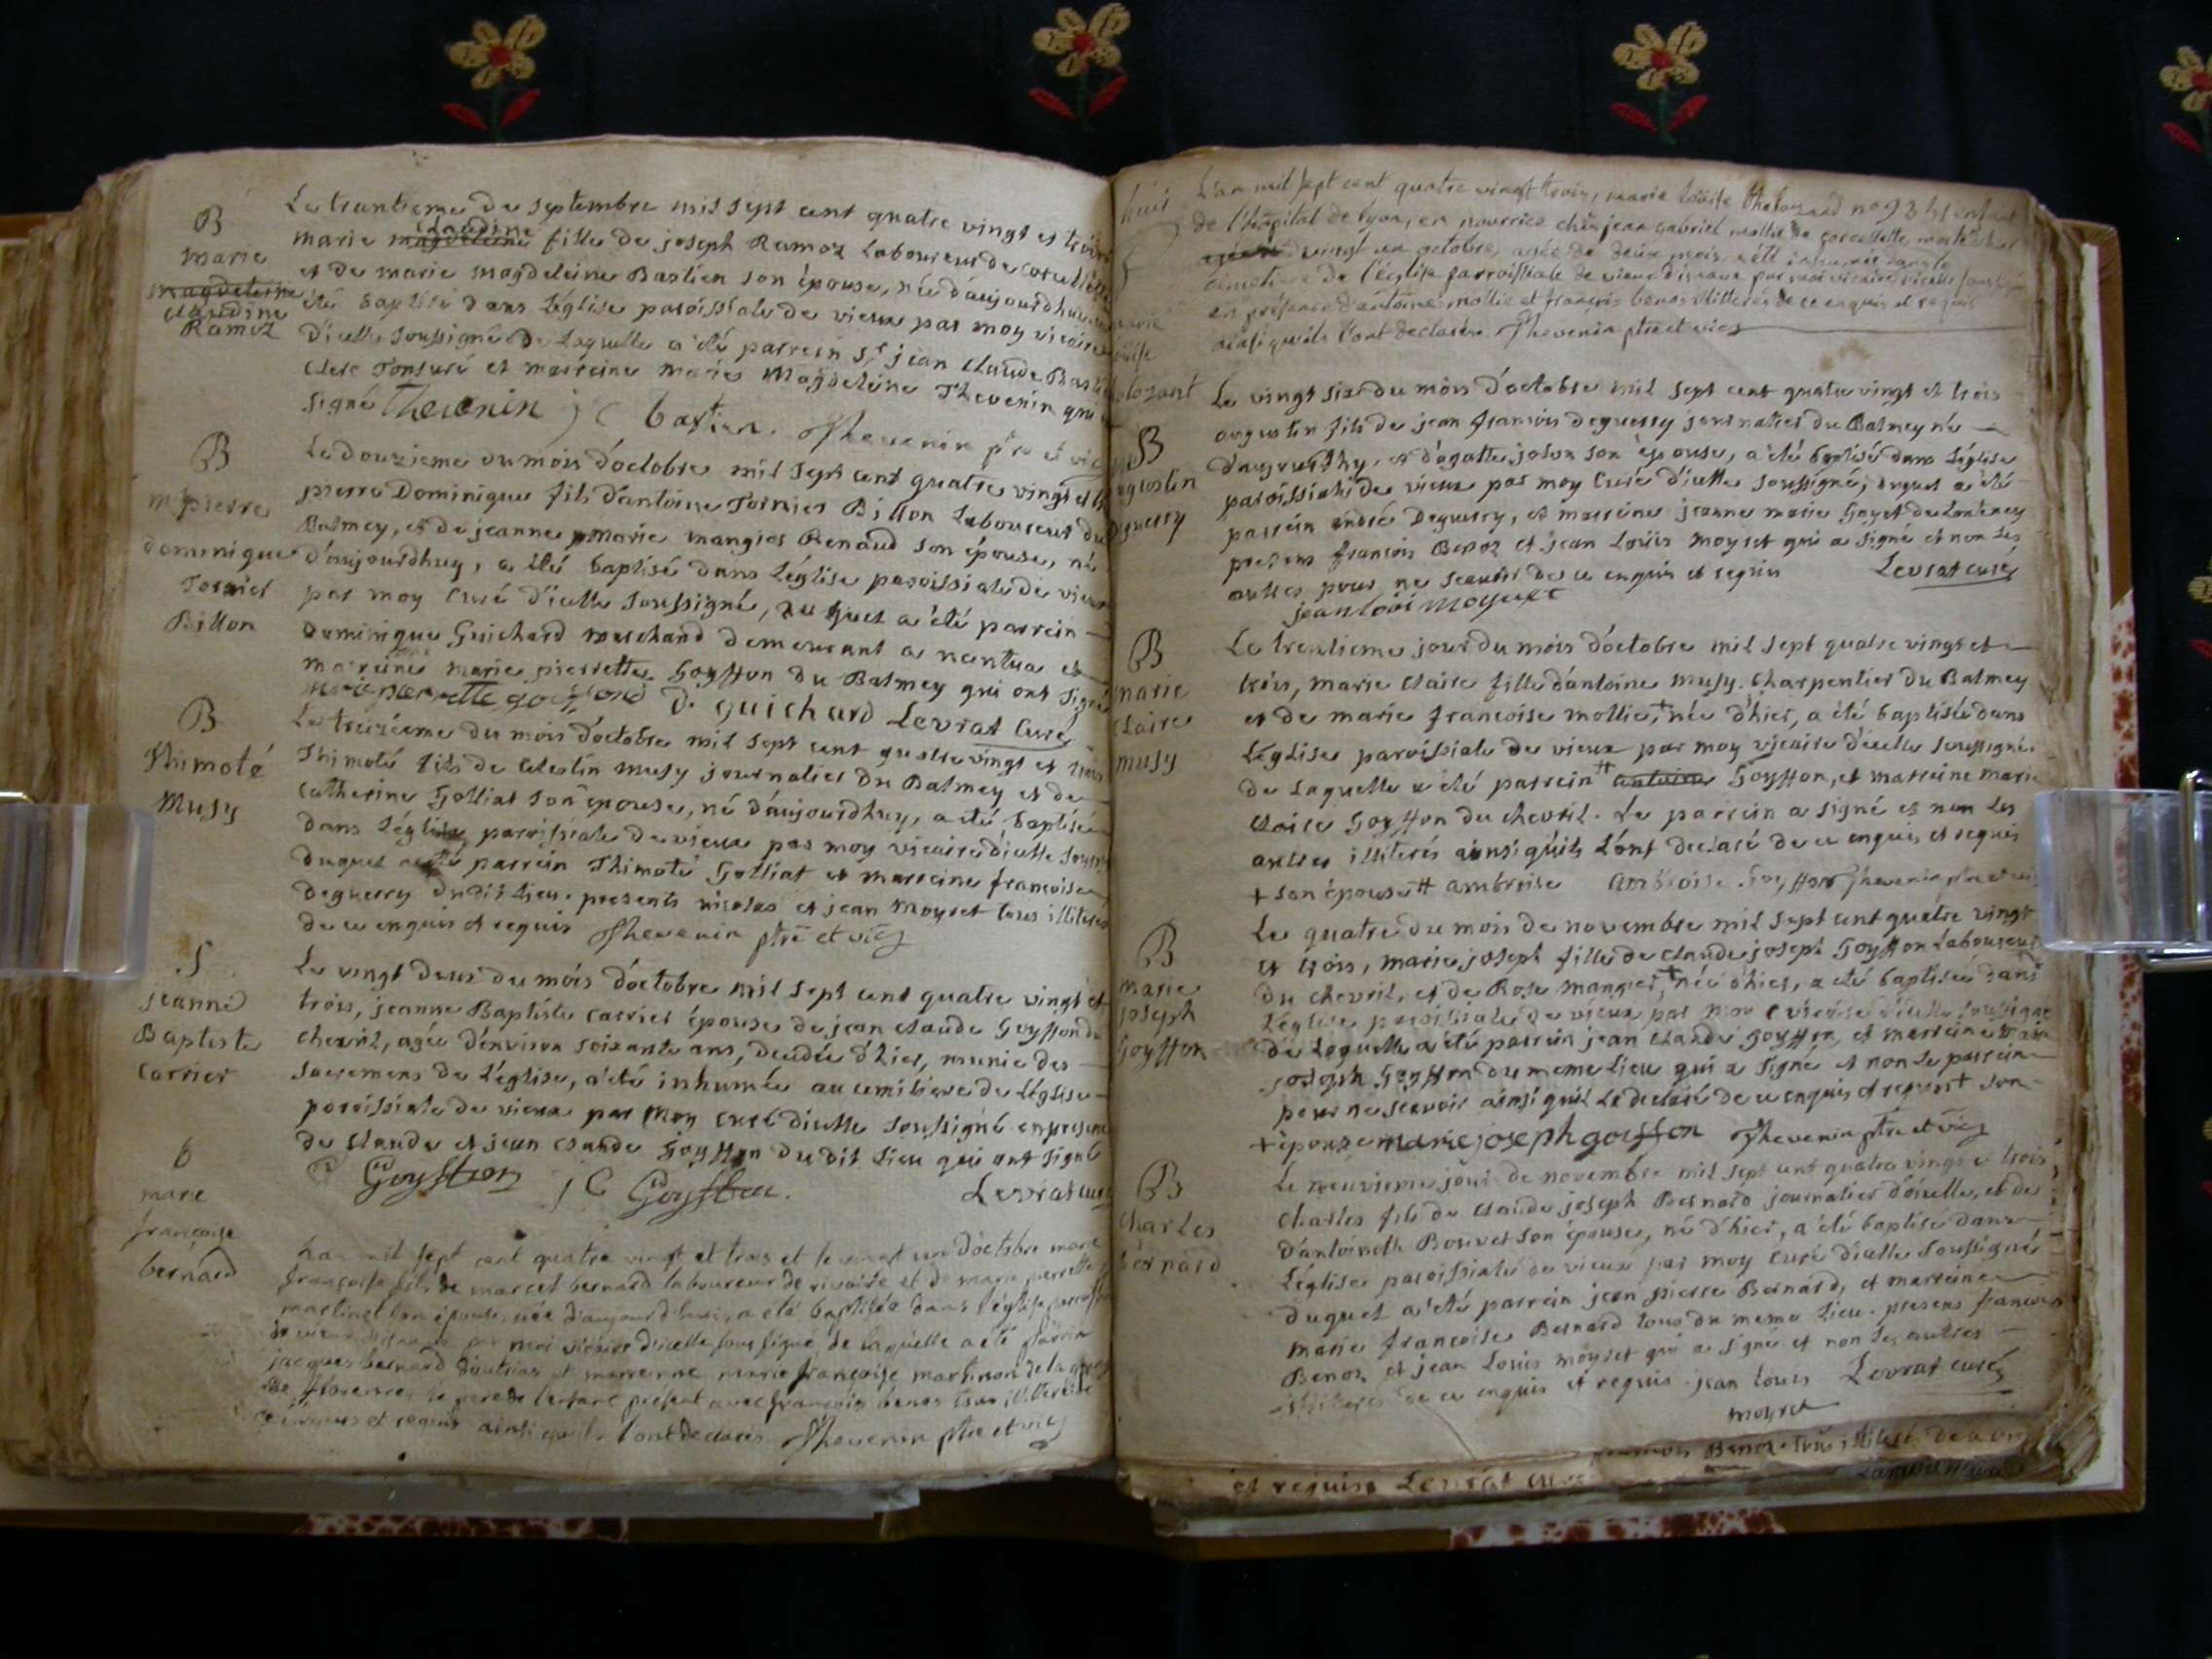 B
marie
magdeleine
claudine
Ramoz
Le trantieme de septembre mil sept cent quatre vingt et trois
claudine
marie magdeleine fille de joseph Ramoz Laboureur de
et de marie magdeleine Bastien son épouse, née d'aujourdhuy
été baptisé dans l'église paroissiale de vieux par moy vicaire
d'icelle soussigné de laquelle a été parrein sr jean claude
clerc Tonsuré et marreine marie Magdeleine Thevenin qui
signé Thevenin j C bastien. Thevenin ptre et vic
B
pierre
dominique
Tornier
Billon
Le douzieme du mois d'octobre mil sept cent quatre vingt et
pierre Dominique fils d'antoine Tornier Billon Laboureur du
Balmey, et de jeanne marie mangier Renaud son épouse, né
d'aujourdhuy, a été baptisé dans l'église paroissiale de vieux
par moy Curé d'icelle soussigné, du quel a été parrein
dominique Guichard marchand demeurant a nantua et
marreine marie pierrette Goyffon du Balmey qui ont signé
marie pierrette D. guichard Levrat Curé
B
Thimoté
Musy
Le treizieme du mois d'octobre mil sept cent quatre vingt et trois
Thimoté fils de Celestin musy journalier du Balmey et de
catherine Golliat son épouse, né d'aujourdhuy, a été baptisé
dans l'église paroissiale de vieux par moy vicaire d'icelle
duquel a été parrein Thimoté Golliat et marreine françoise
deguerry dudit lieu. presents nicolas et jean moyret tous illiteres
de ce enquis et requis Thevenin ptre et vic
S
jeanne
Baptiste
Carrier
Le vingt deux du mois d'octobre mil sept cent quatre vingt et
trois, jeanne Baptiste carrier épouse de jean claude Goyffon du
chevril, agée d'environ soixante ans, décédée d'hier, munie des
sacremens de l'église, a été inhumée au cemitiere de l'église
paroissiale de vieux par moy curé d'icelle soussigné en presence
de claude et jean claude Goyffon dudit lieu qui ont signé
C Goyffon j C Goyffon. Levrat curé
b
marie
françoise
bernard
l'an mil sept cent quatre vingt et trois et le vingt un d'octobre marie
françoise fille de marcel bernard laboureur de et de marie pierrette
martinet son épouse, née d'aujourd'huy, a été baptisée dans l'église
par moi vicaire d'icelle soussigné de laquelle a été parrein
jacques bernard et marrenne marie françoise
le pere de l'enfant présent avec françois benos tous illiterés de
ce enquis et requis ainsi qu'il l'ont declarés Thevenin ptre et vic
huit
S
marie
L'an mil sept cent quatre vingt trois, marie louise enfant
de l'hôpital de lyon, en nourrice chez jean gabriel mollie de morte hier
vingt un octobre, agée de deux mois, a été inhumée dans le
cimetiere de l'église parroissiale de vieux par moi vicaire d'icelle soussigné
en présence d'antoine mollie et françois benos illiterés de ce enquis et requis
ainsi qu'ils l'ont declarés Thevenin ptre et vic
B
augustin
deguerry
Le vingt six du mois d'octobre mil sept cent quatre vingt et trois
augustin fils de jean françois deguerry journalier du Balmey né
d'aujourdhy, et d'agatte jolon son épouse, a été baptisé dans l'église
paroissiale de vieux par moy Curé d'icelle soussigné, duquel a été
parrein andré Deguerry, et marreine jeanne marie Goyet de
presens françois Benoz et jean Loüis moyret qui a signé et non les
autres pour ne scavoir de ce enquis et requis Levrat curé
jean loüi moyret
B
marie
claire
musy
Le trentieme jour du mois d'octobre mil sept quatre vingt et
trois, marie claire fille d'antoine musy. charpentier du Balmey
et de marie francoise mollie,+ née d'hier, a été baptisée dans
L'église paroissiale de vieux par moy vicaire d'icelle soussigné.
de laquelle a été parrein ++ antoine Goyffon, et marreine marie
claire Goyffon du chevril. Le parrein a signé et non les
autres illiterés ainsi qu'ils l'ont declaré de ce enquis et requis
+ son épouse ++ ambroise ambroise Goyffon Thevenin ptre et vic
B
marie
joseph
Goyffon
Le quatre du mois de novembre mil sept cent quatre vingt
et trois, marie joseph fille de claude joseph Goyffon Laboureur
du chevril, et de Rose mangier,+ née d'hier, a été baptisée dans
l'église paroissiale de vieux par moy vicaire d'icelle soussigné
de laquelle a été parrein jean claude Goyffon, et marreine marie
joseph Goyffon du meme lieu qui a signé et non le parrein
pour ne scavoir ainsi qu'il l'a declaré de ce enquis et requis + son
+ épouse marie joseph goiffon Thevenin ptre et vic
B
charles
bernard
Le neuvieme jour de novembre mil sept cent quatre vingt et trois
charles fils de claude joseph Bernard journalier d'oiselle, et de
d'antoinette Bouvet son épouse, né d'hier, a été baptisé dans
l'église paroissiale de vieux par moy curé d'icelle soussigné
duquel a été parrein jean pierre Bernard, et marreine
marie francoise Bernard tous du meme lieu. presens francois
Benoz et jean Louis moyret qui a signé et non les autres
illiteres de ce enquis et requis jean louis Levrat curé
moyret
Benoz tous illiteré de
et requis Levrat curé